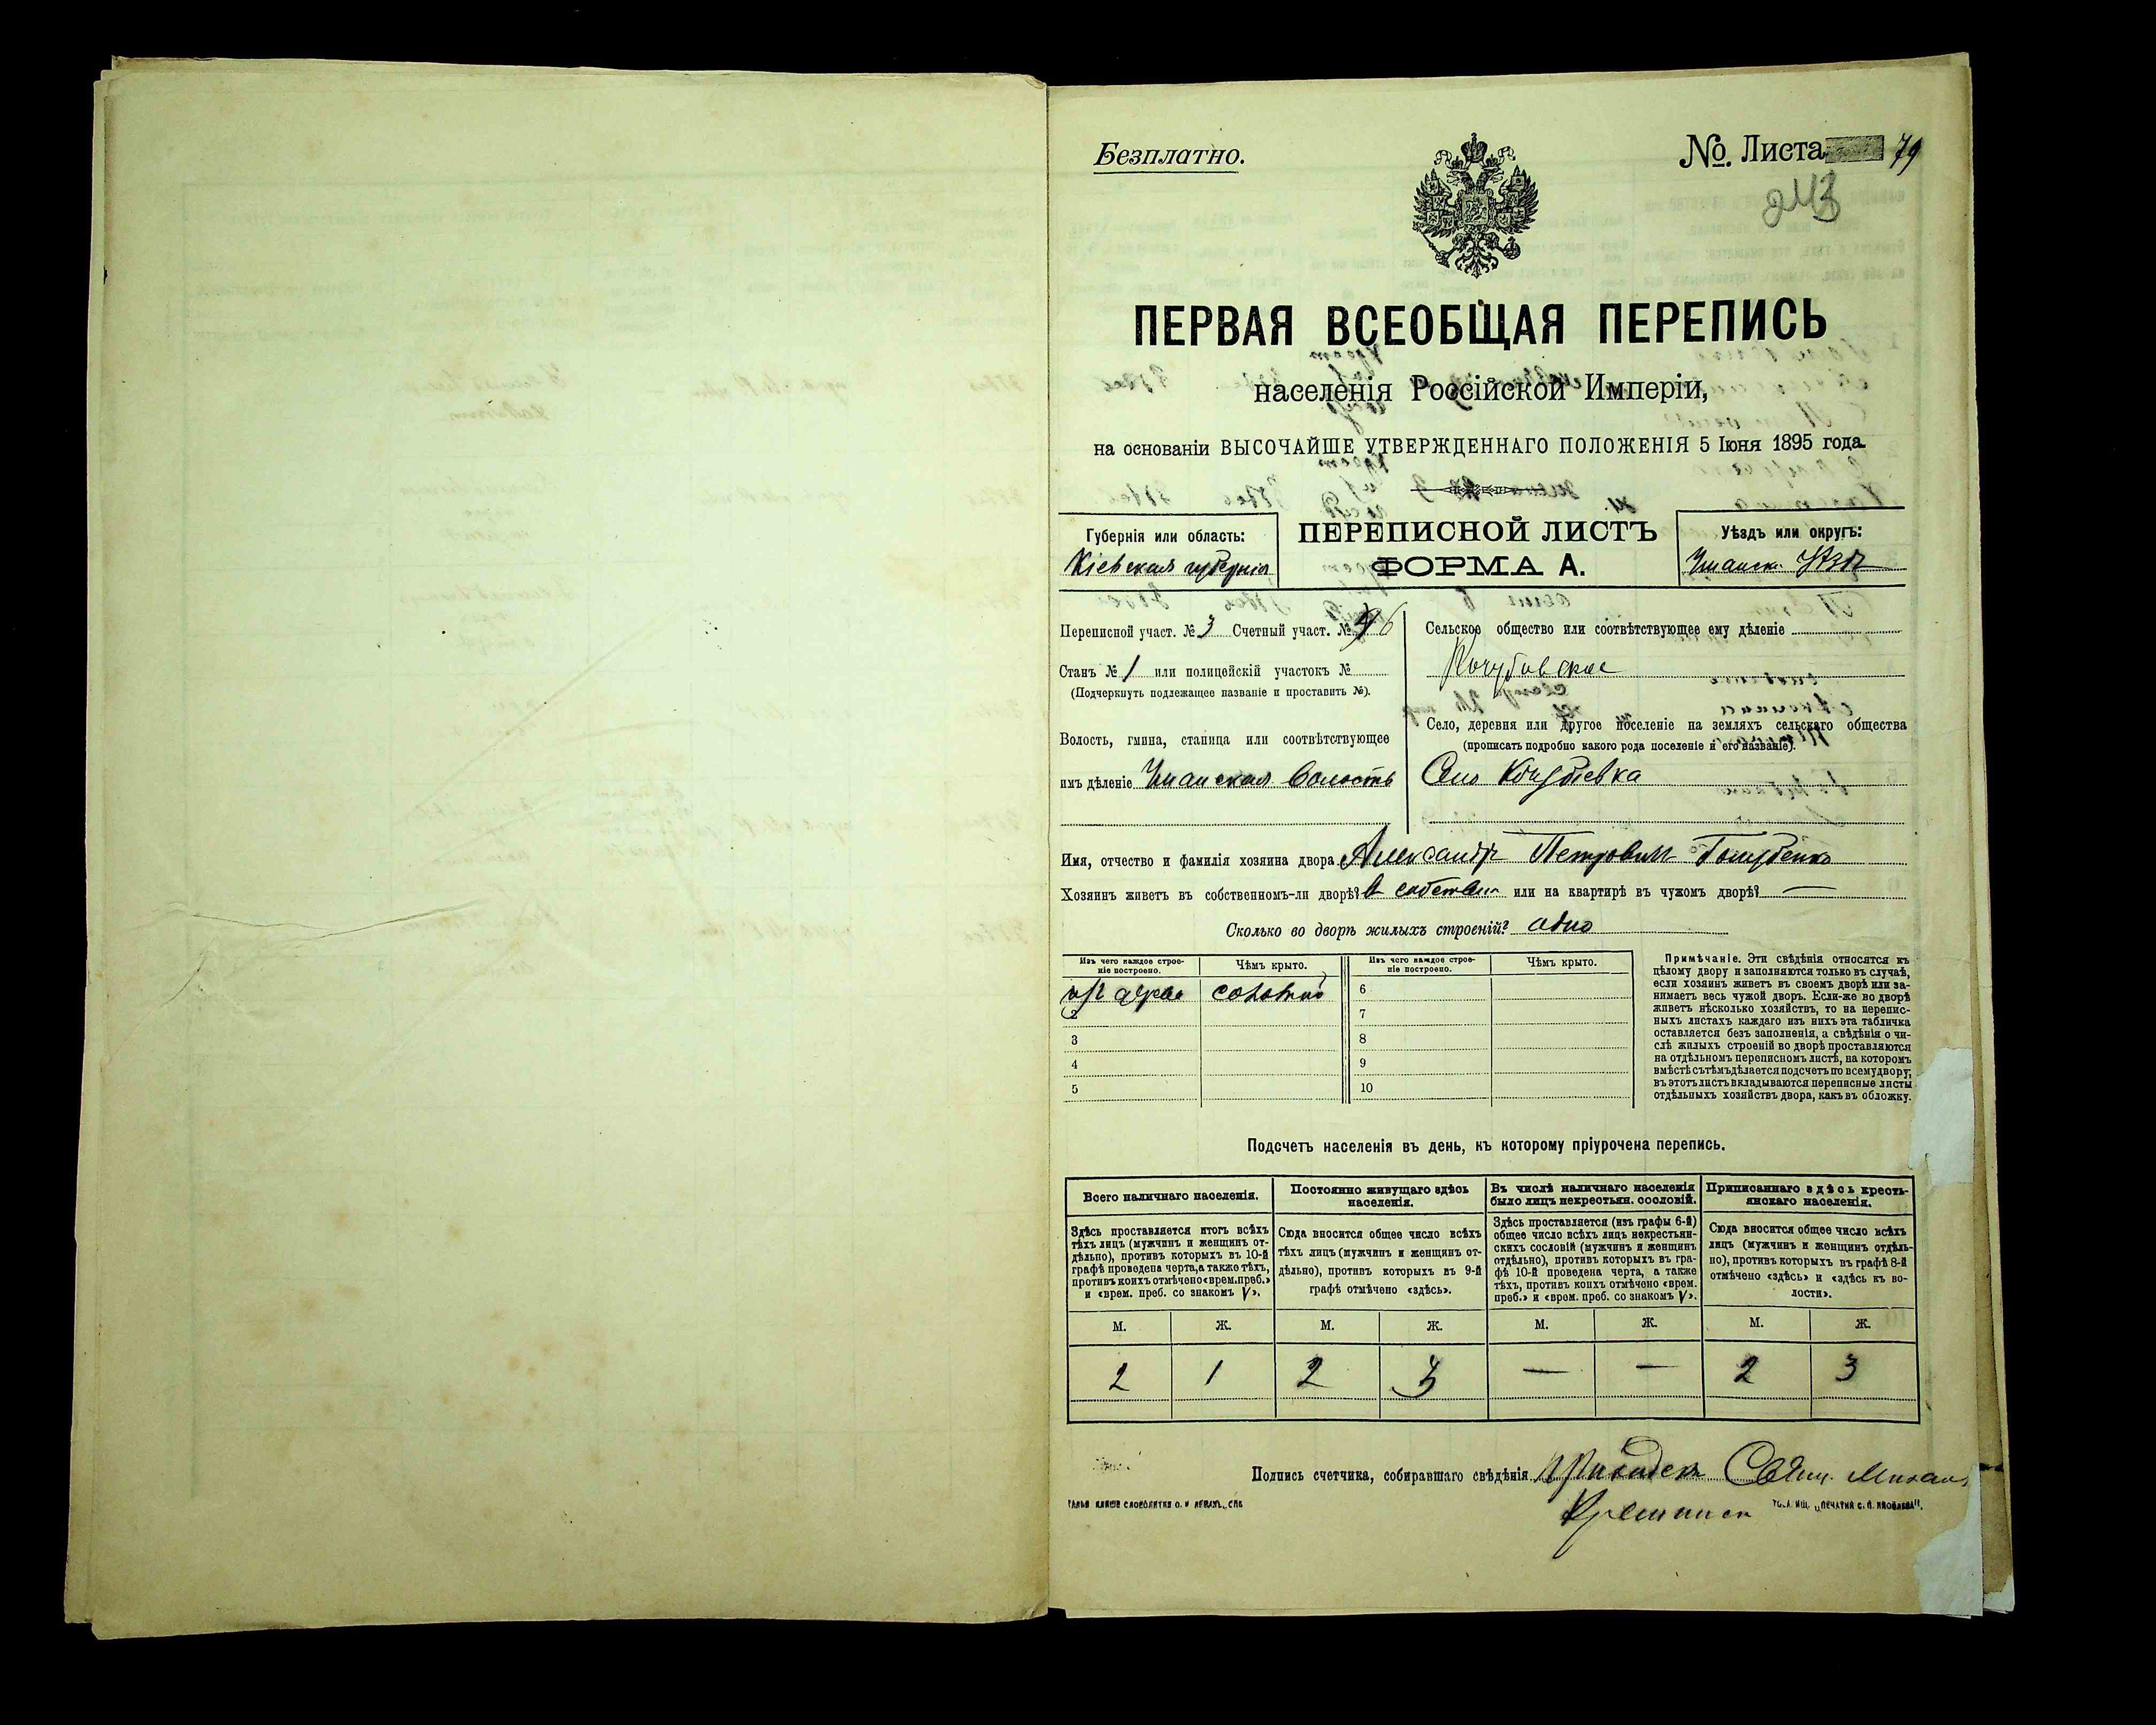 Безплатно.
№ Листа 79
243
ПЕРВАЯ ВСЕОБЩАЯ ПЕРЕПИСЬ
населенія Россійской Имперіи,
на основаніи ВЫСОЧАЙШЕ УТВЕРЖДЕННАГО ПОЛОЖЕНІЯ 5 Іюня 1895 года.
Губернія или область:
Кіевская губернія
ПЕРЕПИСНОЙ ЛИСТЪ
ФОРМА А.
Уѣздъ или округъ:
Уманск. Уѣздъ
Переписной участ. № 3 Счетный участ. № 6
Станъ № 1 или полицейскій участокъ №
(Подчеркнуть подлежащее названіе и проставить №).
Волость, гмина, станица или соотвѣтствующее
имъ дѣленіе Уманская Волость
Сельское общество или соотвѣтствующее ему дѣленіе
Кочубовское
Село, деревня или другое поселеніе на земляхъ сельскаго общества
(прописать подробно какого рода поселеніе и его названіе).
Село Кочубіевка
Имя, отчество и фамилія хозяина двора Александръ Петровичъ Голубенко
Хозяинъ живетъ въ собственномъ-ли дворѣ? въ собствен или на квартирѣ въ чужомъ дворѣ? —
Сколько во дворѣ жилыхъ строеній? одно
Изъ чего каждое строе-
ніе построено.
Чѣмъ крыто.
Изъ чего каждое строе-
ніе построено.
Чѣмъ крыто.
изъ дерева соломой
2
3
4
5
6
7
8
9
10
Примѣчаніе. Эти свѣдѣнія относятся къ
цѣлому двору и заполняются только въ случаѣ,
если хозяинъ живетъ въ своемъ дворѣ или за-
нимаетъ весь чужой дворъ. Если-же во дворѣ
живетъ нѣсколько хозяйствъ, то на перепис-
ныхъ листахъ каждаго изъ нихъ эта табличка
оставляется безъ заполненія, а свѣдѣнія о чи-
слѣ жилыхъ строеній во дворѣ проставляются
на отдѣльномъ переписномъ листѣ, на которомъ
вмѣстѣ съ тѣмъ дѣлается подсчетъ по всему двору;
въ этотъ листъ вкладываются переписные листы
отдѣльныхъ хозяйствъ двора, какъ въ обложку.
Подсчетъ населенія въ день, къ которому пріурочена перепись.
Всего наличнаго населенія.
Здѣсь проставляется итогъ всѣхъ
тѣхъ лицъ (мужчинъ и женщинъ от-
дѣльно), противъ которыхъ въ 10-й
графѣ проведена черта, а также тѣхъ,
противъ коихъ отмѣчено «врем. преб.»
и «врем. преб. со знакомъ V».
Постоянно живущаго здѣсь
населенія.
Сюда вносится общее число всѣхъ
тѣхъ лицъ (мужчинъ и женщинъ от-
дѣльно), противъ которыхъ въ 9-й
графѣ отмѣчено «здѣсь».
Въ числѣ наличнаго населенія
было лицъ некрестьян. сословій.
Здѣсь проставляется (изъ графы 6-й)
общее число всѣхъ лицъ некрестьян-
скихъ сословій (мужчинъ и женщинъ
отдѣльно), противъ которыхъ въ гра-
фѣ 10-й проведена черта, а также
тѣхъ, противъ коихъ отмѣчено «врем.
преб.» и «врем. преб. со знакомъ V».
Приписаннаго здѣсь кресть-
янскаго населенія.
Сюда вносится общее число всѣхъ
лицъ (мужчинъ и женщинъ отдѣль-
но), противъ которыхъ въ графѣ 8-й
отмѣчено «здѣсь» и «здѣсь къ во-
лости».
М. Ж. М. Ж. М. Ж. М. Ж.
2 1 2 3 — — 2 3
Подпись счетчика, собиравшаго свѣдѣнія